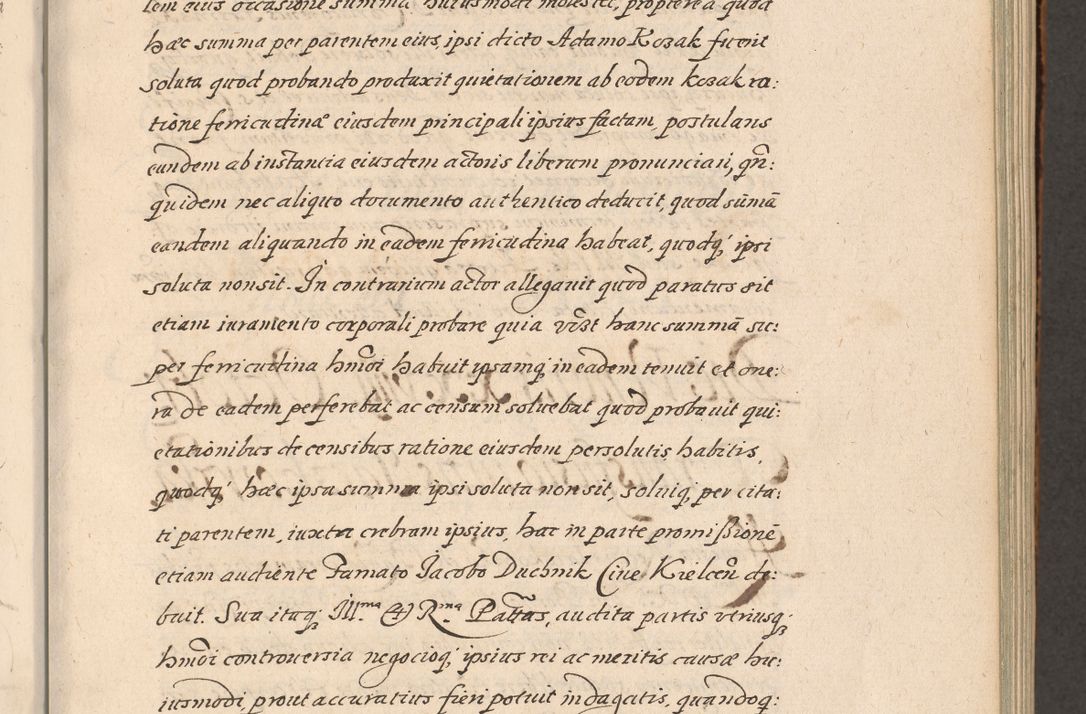 lem eius occasione summa huiusmodi molestet, propterea quod
hæc summa per parentem eius, ipsi dicto Adamo Kozak fuerit
soluta quod probando produxit quietationem ab eodem kozak ra:
tione ferricudinæ eiusdem principali ipsius factam, postulans
eundem ab instantia eiusdem actoris liberum pronunciari, qñ:
quidem nec aliquo documento authentico deducit, quod sum̄ā
eandem aliquando in eadem ferricudina habeat, quodq́ ipsi
soluta non sit. In contrarium actor allegauit quod paratus sit
etiam iuramento corporali probare quia hanc summā su:
per ferricudina hm̄oi habuit ipsamq́ in eadem tenuit et one:
ra de eadem perferebat ac censum soluebat quod probauit qui:
etationibus de censibus ratione eiusdem persolutis habitis,
quodq́ hæc ipsa summa ipsi soluta non sit, soluiq́ per cita:
ti parentem, iuxta crebram ipsius, hac in parte promißionē
etiam audiente Famato Jacobo Duchnik Ciue Kielceñ de:
buit. Sua itaq́ Ill.ma et R.ma Pa\u0304ttas, audita partis vtriusq́
hm̄oi controuersia negocioq́ ipsius rei ac meritis causæ hu:
iusmodi, prout accuratius fieri potuit indagatis, quandoq: